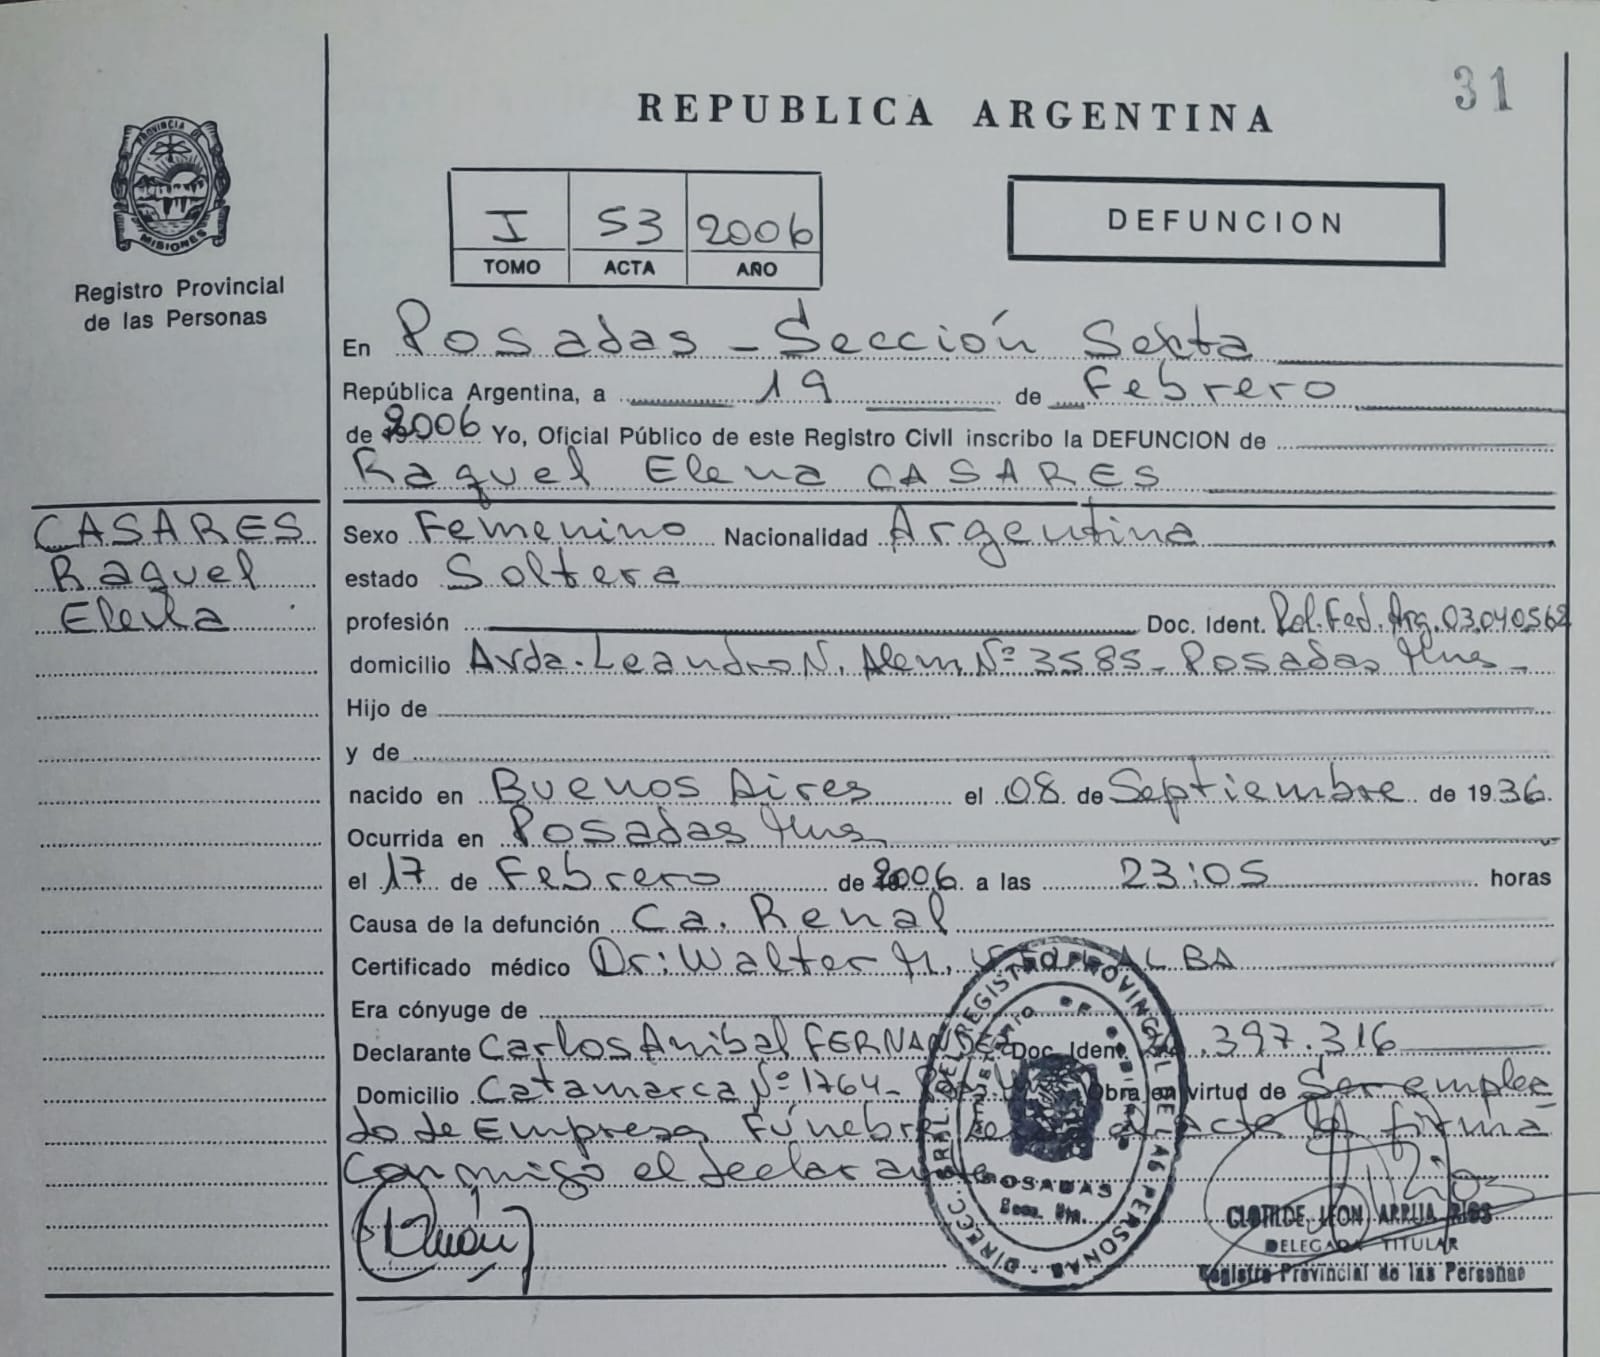 31
REPUBLICA ARGENTINA
PROVINCIA DE
MISIONES
Registro Provincial
de las Personas
I 53 2006
TOMO ACTA AÑO
DEFUNCION
En Posadas - Sección Sexta
República Argentina, a 19 de Febrero
de 2006 Yo, Oficial Público de este Registro Civil inscribo la DEFUNCION de
Raquel Elena CASARES
CASARES
Raquel
Elena
Sexo Femenino Nacionalidad Argentina
estado Soltera
profesión Doc. Ident. Pol. Fed. Arg. 03.040.562
domicilio Avda. Leandro N. Alem Nº 3585 - Posadas Mnes -
Hijo de
y de
nacido en Buenos Aires el 08 de Septiembre de 1936.
Ocurrida en Posadas Mnes
el 17 de Febrero de 2006 a las 23:05 horas
Causa de la defunción Ca. Renal
Certificado médico Dr: Walter M. ALBA
Era cónyuge de
Declarante Carlos Anibal FERNANDEZ Doc. Ident. .397.316
Domicilio Catamarca Nº 1764 - Obra en virtud de Ser emplea
do de Empresa Fúnebre acta la firma
conmigo el declarante
DIRECC. GRAL. DEL REGISTRO PROVINCIAL DE LAS PERSONAS
MINISTERIO DE GOBIERNO
POSADAS
Secc. 6ta.
CLOTILDE LEON ARRUA RIOS
DELEGADA TITULAR
Registro Provincial de las Personas